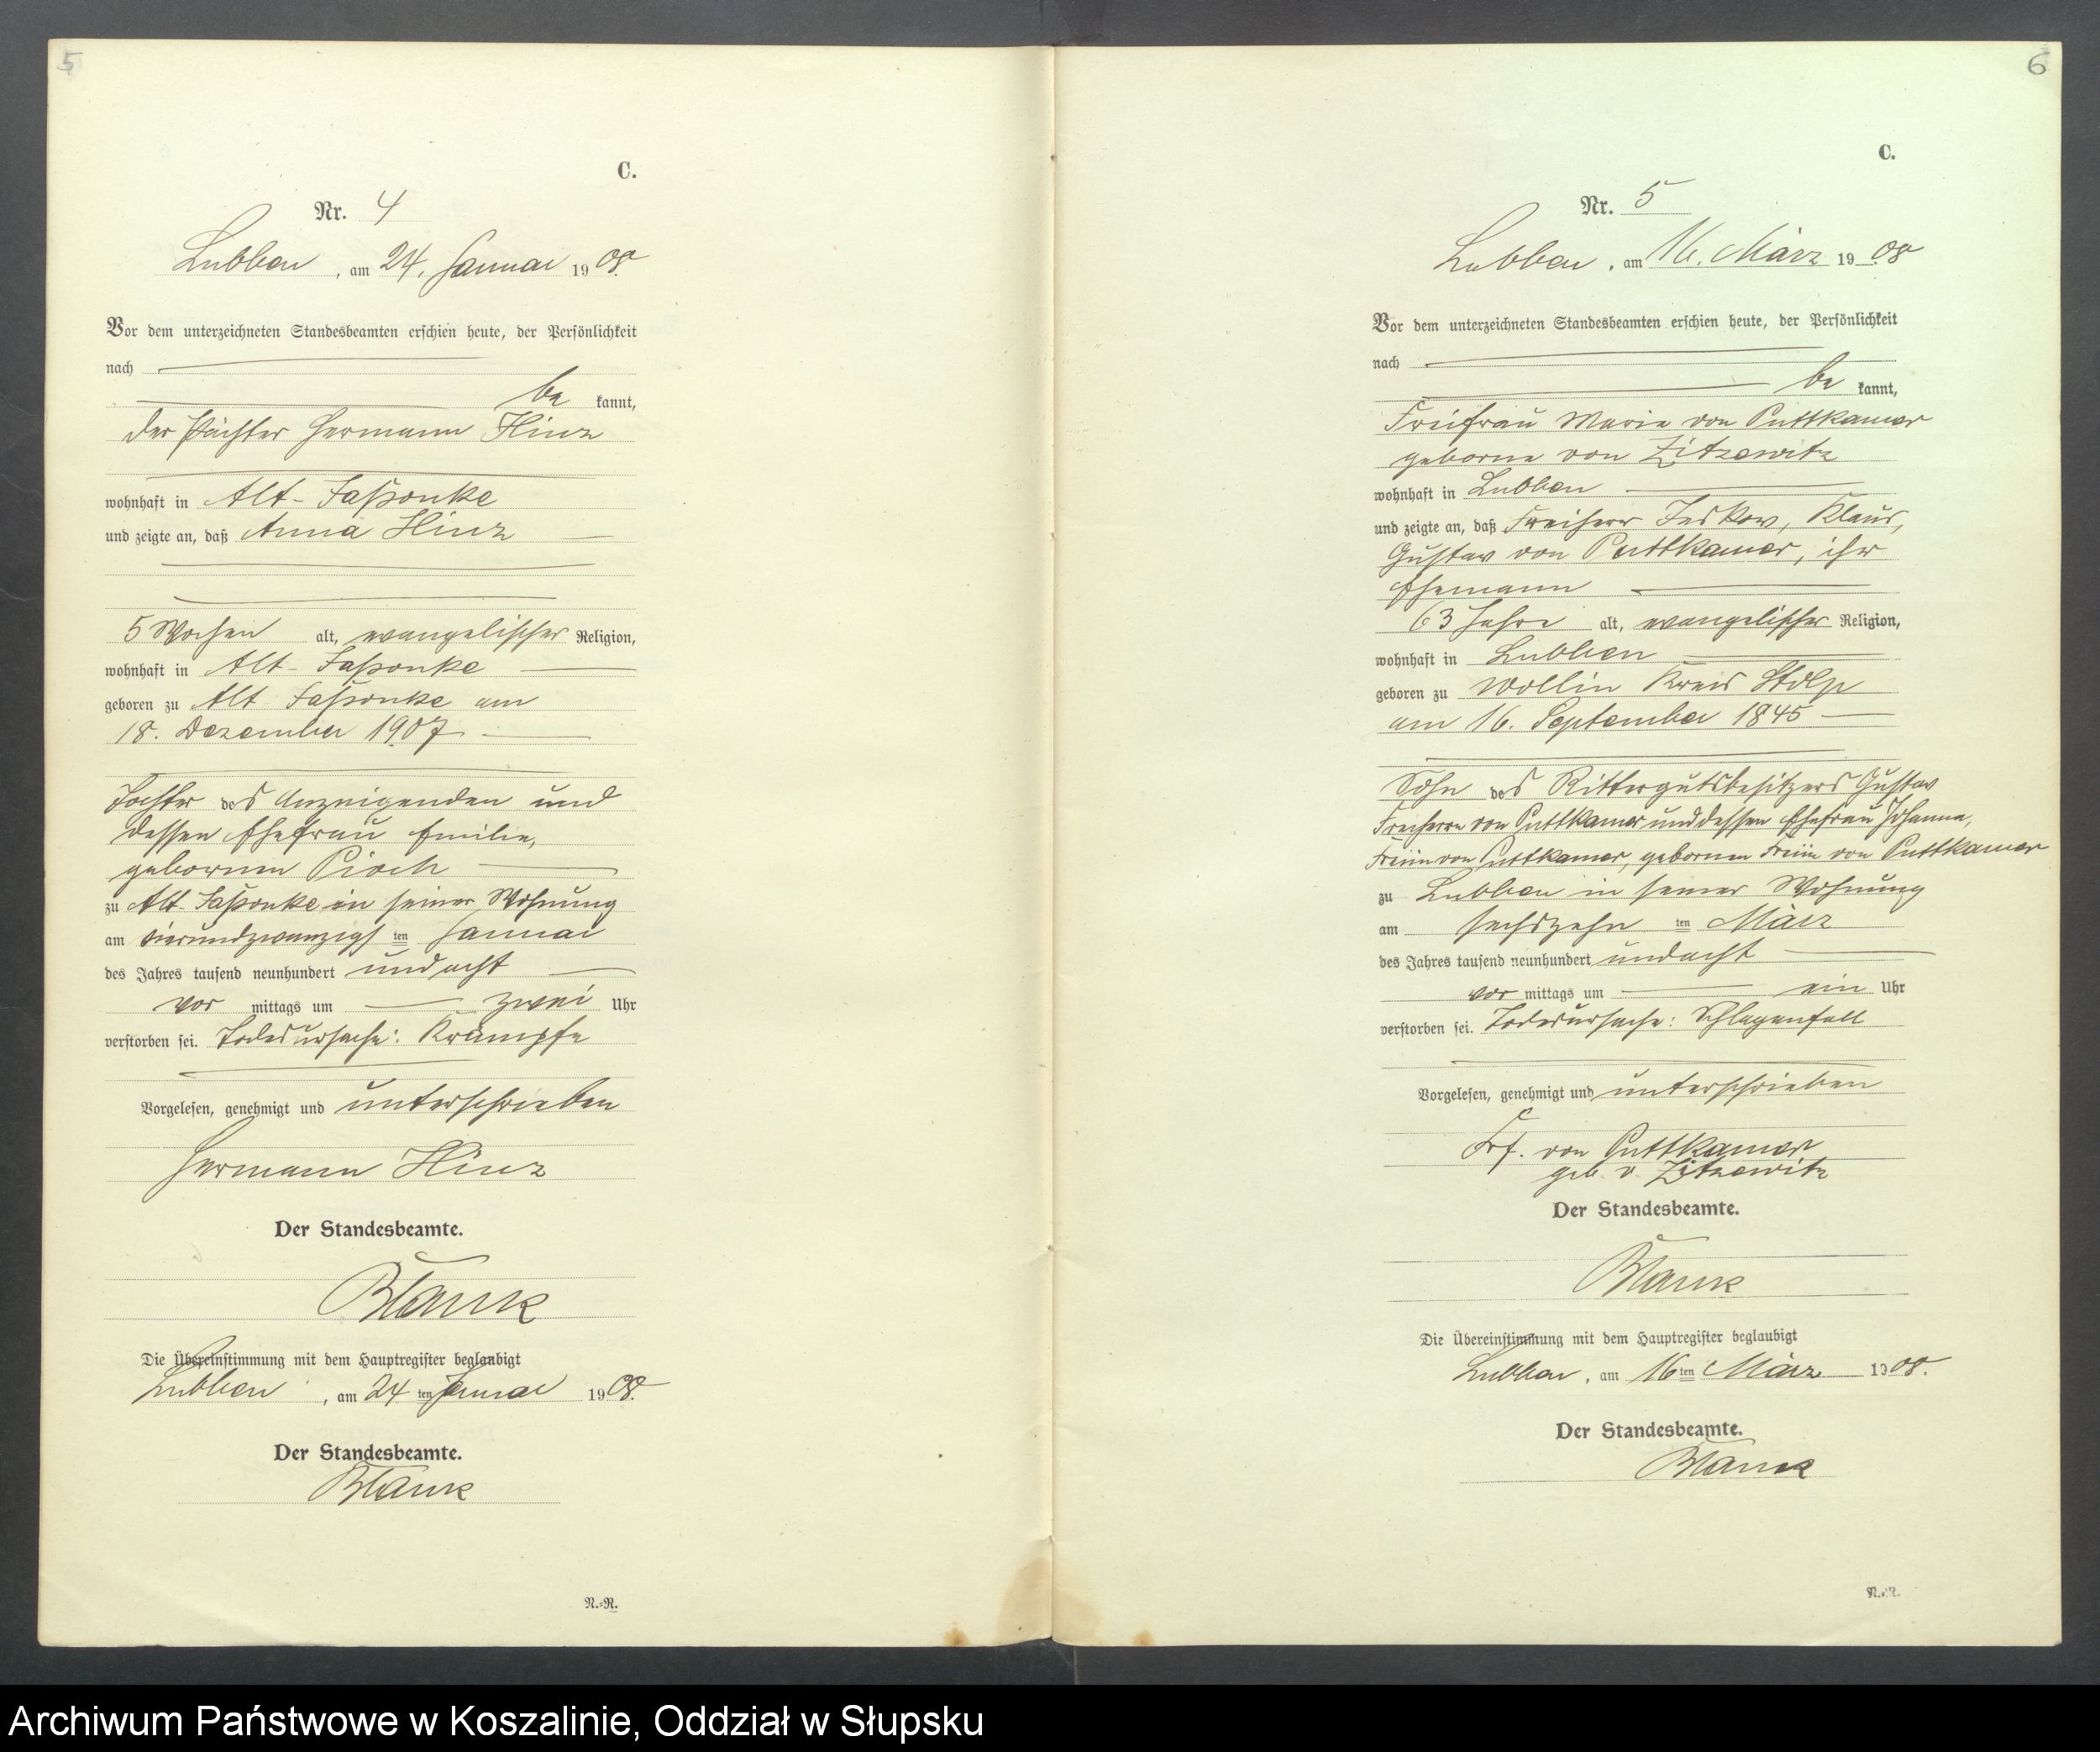 5
C.
Nr. 4
Lubben, am 24. Januar 1908.
Vor dem unterzeichneten Standesbeamten erschien heute, der Persönlichkeit
nach
bekannt,
der Pächter Hermann Hinz
wohnhaft in Alt-Jaßonke
und zeigte an, daß Anna Hinz
5 Wochen alt, evangelischer Religion,
wohnhaft in Alt-Jaßonke
geboren zu Alt Jaßonke am
18. Dezember 1907
Tochter des Anzeigenden und
dessen Ehefrau Emilie,
gebornen Pioch
zu Alt-Jaßonke in seiner Wohnung
am vierundzwanzigsten Januar
des Jahres tausend neunhundert und acht
vor mittags um zwei Uhr
verstorben sei. Todesursache: Krämpfe
Vorgelesen, genehmigt und unterschrieben
Hermann Hinz
Der Standesbeamte.
Blank
Die Übereinstimmung mit dem Hauptregister beglaubigt
Lubben, am 24ten Januar 1908.
Der Standesbeamte.
Blank
N.-R.
6
C.
Nr. 5
Lubben, am 16. März 1908
Vor dem unterzeichneten Standesbeamten erschien heute, der Persönlichkeit
nach
bekannt,
Freifrau Marie von Puttkamer
geborne von Zitzewitz
wohnhaft in Lubben
und zeigte an, daß Freiherr Jeskow, Klaus,
Gustav von Puttkamer, ihr
Ehemann
63 Jahre alt, evangelischer Religion,
wohnhaft in Lubben
geboren zu Wollin Kreis Stolp
am 16. September 1845
Sohn des Rittergutsbesitzers Gustav
Freiherrn von Puttkamer und dessen Ehefrau Johanna,
Freiin von Puttkamer, gebornen Freiin von Puttkamer
zu Lubben in seiner Wohnung
am sechszehnten März
des Jahres tausend neunhundert und acht
vor mittags um ein Uhr
verstorben sei. Todesursache: Schlaganfall
Vorgelesen, genehmigt und unterschrieben
Frf. von Puttkamer
geb. v. Zitzewitz
Der Standesbeamte.
Blank
Die Übereinstimmung mit dem Hauptregister beglaubigt
Lubben, am 16ten März 1908.
Der Standesbeamte.
Blank
N.-R.
Archiwum Państwowe w Koszalinie, Oddział w Słupsku